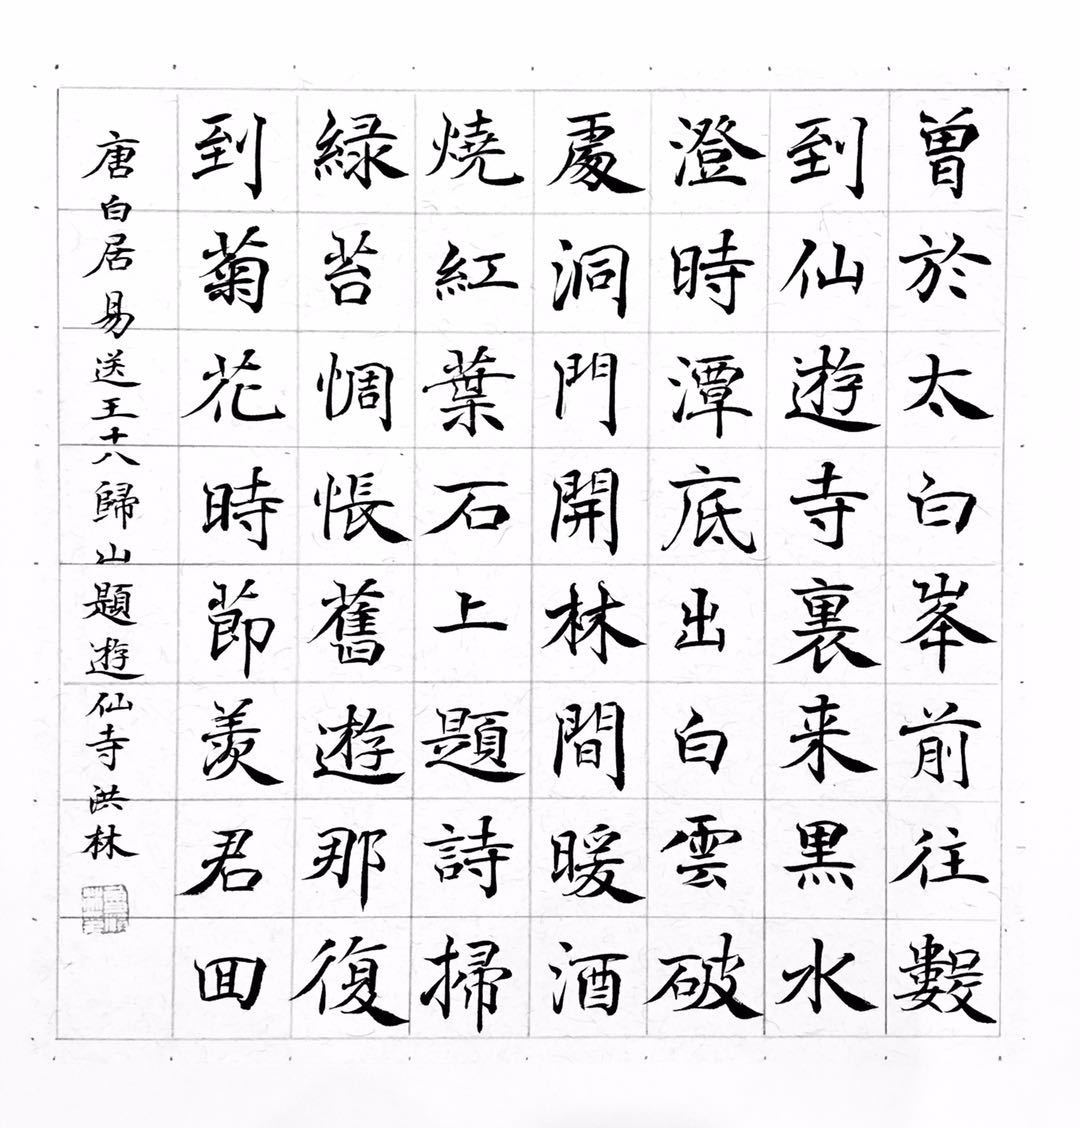 曾於太白峯前往數
到仙遊寺裏来黑水
澄時潭底出白雲破
處洞門開林間暖酒
燒紅葉石上題詩掃
緑苔惆悵舊遊那復
到菊花時節羨君回
唐白居易送王十八歸山題遊仙寺洪林